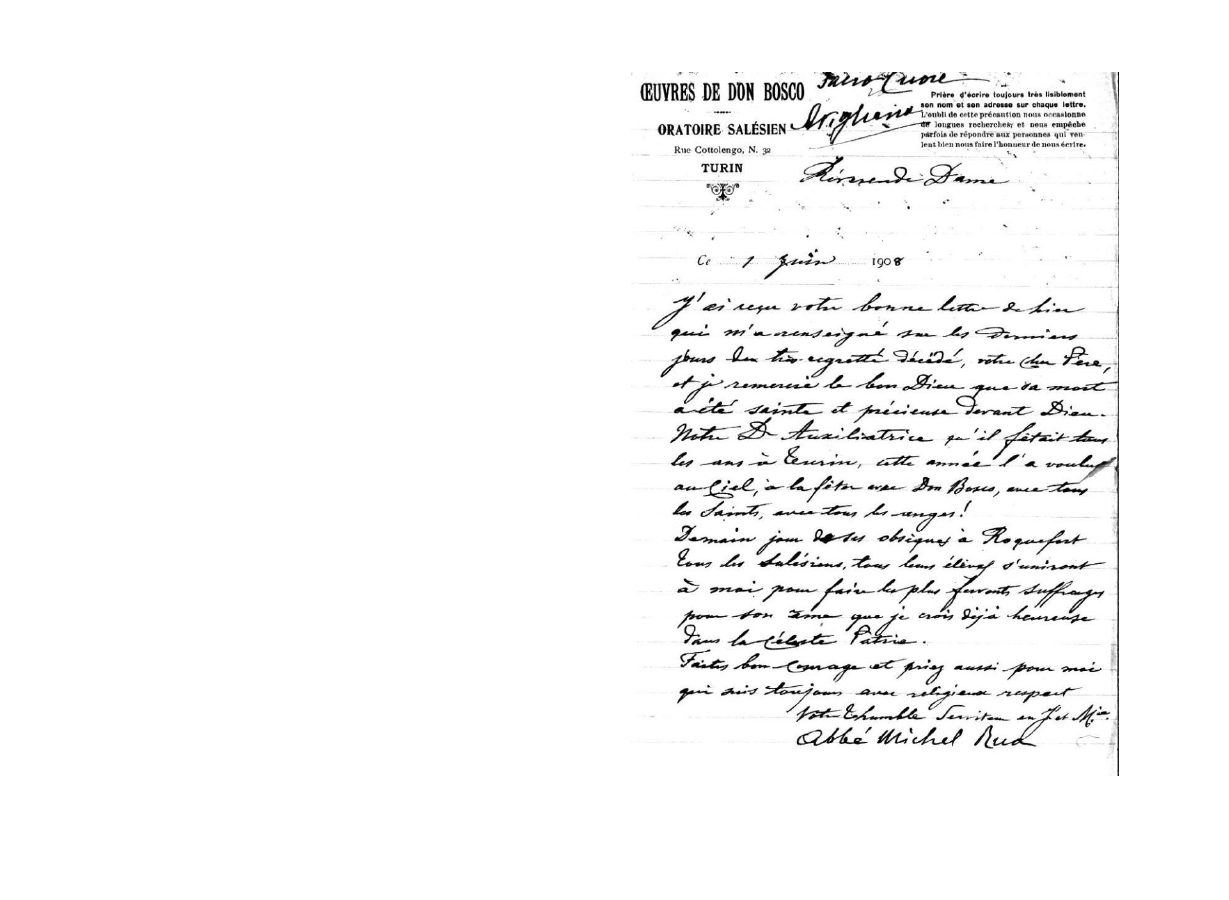 Sacro Cuore
ŒUVRES DE DON BOSCO
Avigliana
Prière d'écrire toujours très lisiblement
son nom et son adresse sur chaque lettre.
L'oubli de cette précaution nous occasionne
de longues recherches; et nous empêche
parfois de répondre aux personnes qui veu-
lent bien nous faire l'honneur de nous écrire.
ORATOIRE SALÉSIEN
Rue Cottolengo, N. 32
TURIN
Révérende Dame
Ce 1 Juin 1908
J'ai reçu votre bonne lettre de hier
qui m'a renseigné sur les derniers
jours du très regretté décédé, votre cher Père,
et je remercie le bon Dieu que sa mort
a été sainte et précieuse devant Dieu.
Notre D. Auxiliatrice qu'il fêtait tous
les ans à Turin, cette année l'a voulu
au Ciel, à la fêter avec Don Bosco, avec tous
les Saints, avec tous les anges!
Demain jour de ses obsèques à Roquefort
tous les Salésiens, tous leurs élèves s'uniront
à moi pour faire les plus fervents suffrages
pour son âme que je crois déjà heureuse
dans la Céleste Patrie.
Faites bon courage et priez aussi pour moi
qui suis toujours avec religieux respect
Votre humble Serviteur en J. et M.
Abbé Michel Rua